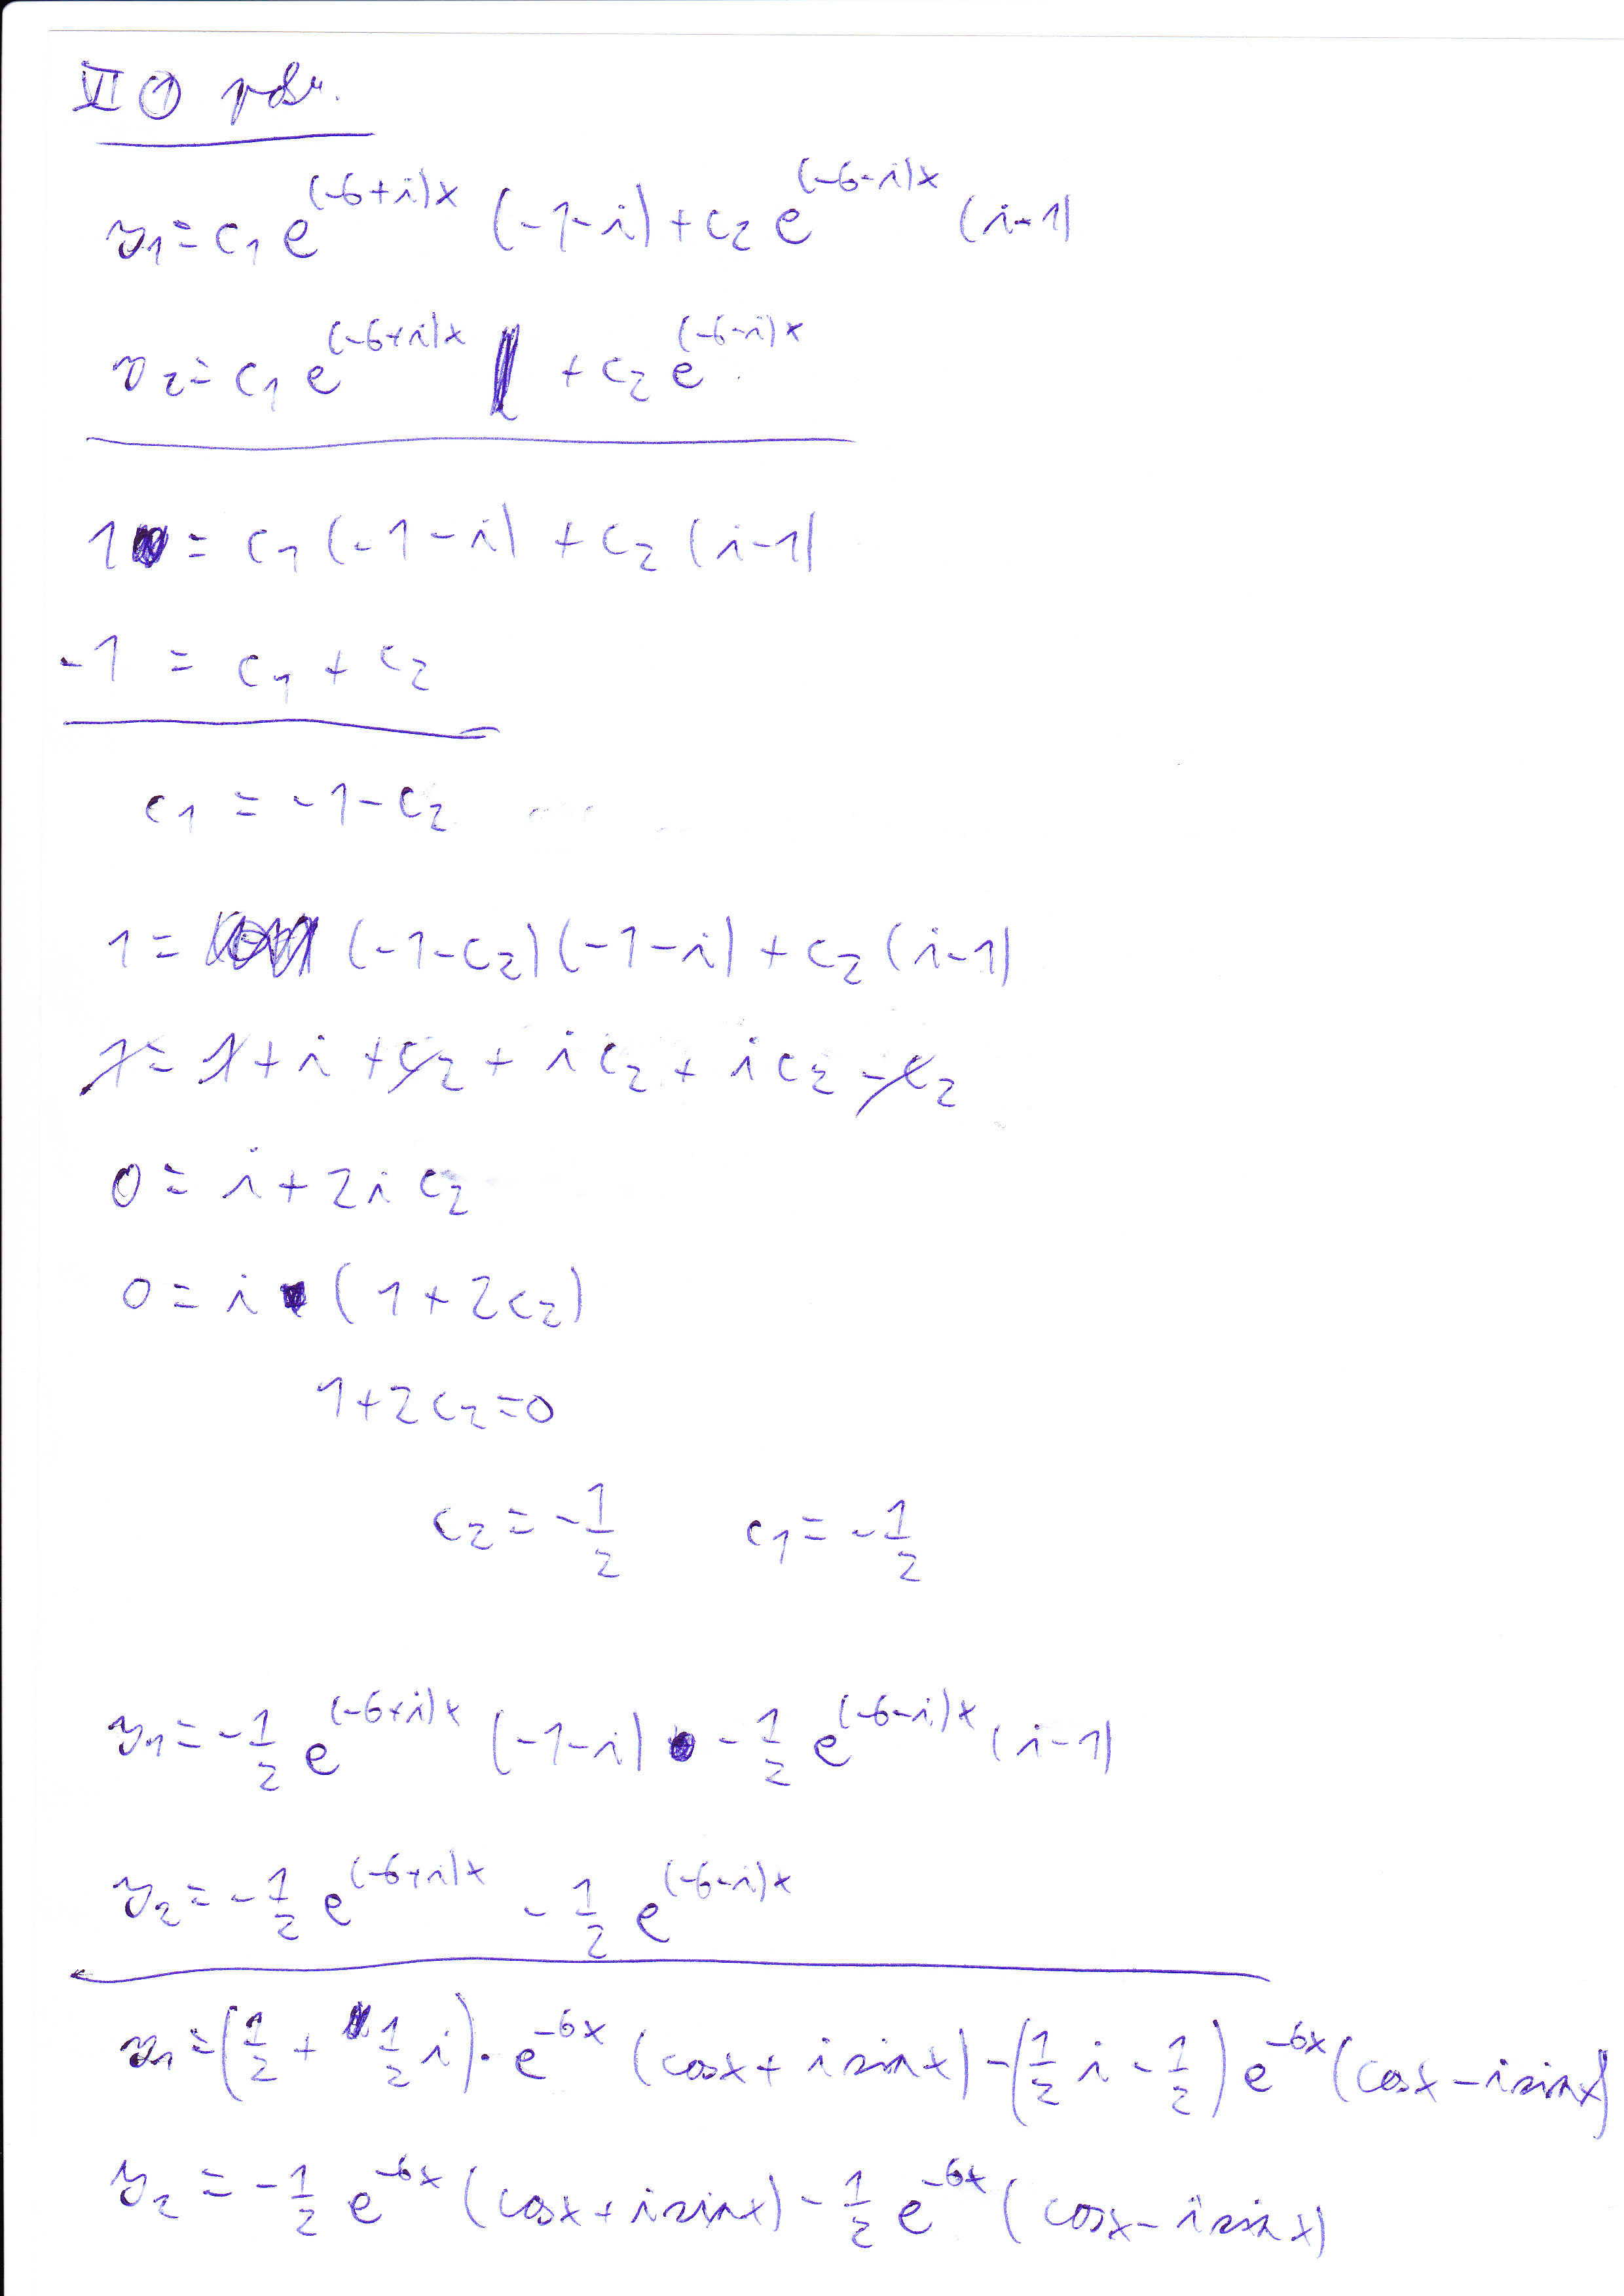 VI ①
y₁ = c₁ e^((-6+i)x) (-1-i) + c₂ e^((-6-i)x) (i-1)
y₂ = c₁ e^((-6+i)x) + c₂ e^((-6-i)x)
1 = c₁ (-1-i) + c₂ (i-1)
-1 = c₁ + c₂
c₁ = -1-c₂
1 = (-1-c₂)(-1-i) + c₂ (i-1)
1 = 1 + i + c₂ + i c₂ + i c₂ - c₂
0 = i + 2i c₂
0 = i (1 + 2c₂)
1+2c₂=0
c₂ = -1/2 c₁ = -1/2
y₁ = -1/2 e^((-6+i)x) (-1-i) - 1/2 e^((-6-i)x) (i-1)
y₂ = -1/2 e^((-6+i)x) - 1/2 e^((-6-i)x)
y₁ = (1/2 + 1/2 i) · e^(-6x) (cosx + i sinx) - (1/2 i - 1/2) e^(-6x) (cosx - i sinx)
y₂ = -1/2 e^(-6x) (cosx + i sinx) - 1/2 e^(-6x) (cosx - i sinx)